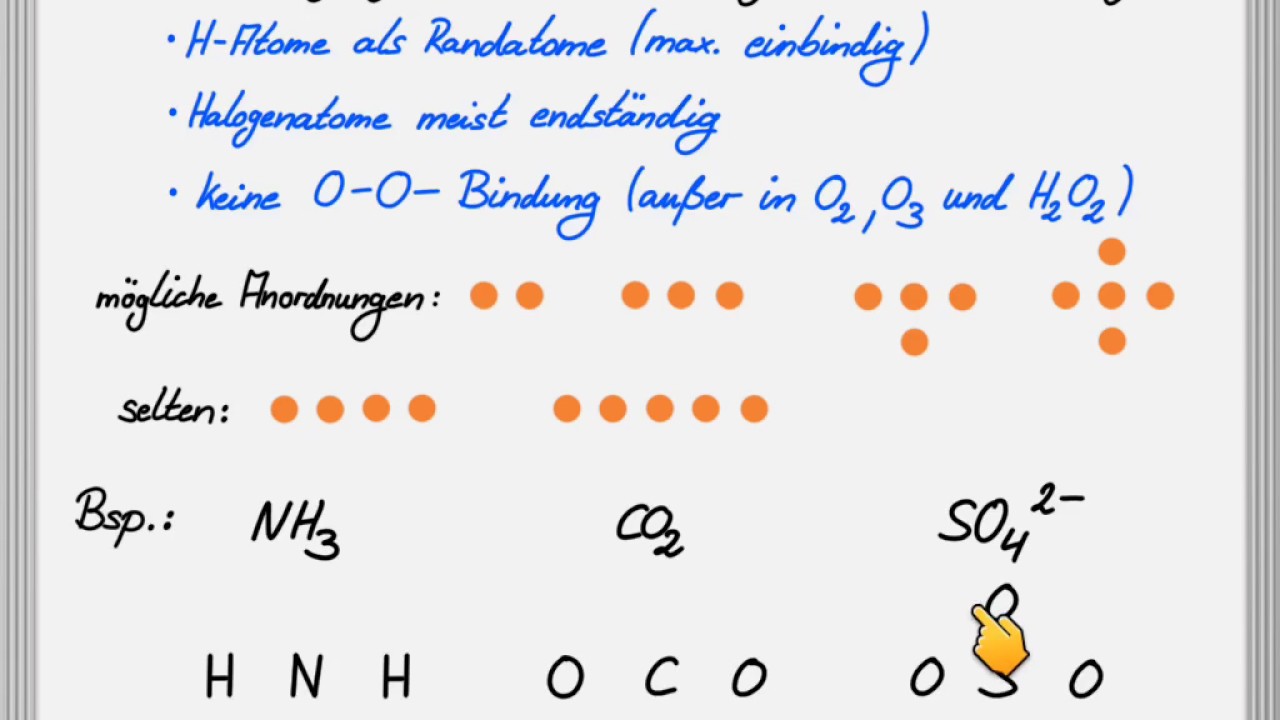 · H-Atome als Randatome (max. einbindig)
· Halogenatome meist endständig
· keine O-O- Bindung (außer in O₂, O₃ und H₂O₂)
mögliche Anordnungen:
selten:
Bsp.: NH₃ CO₂ SO₄²⁻
O
H N H O C O O S O